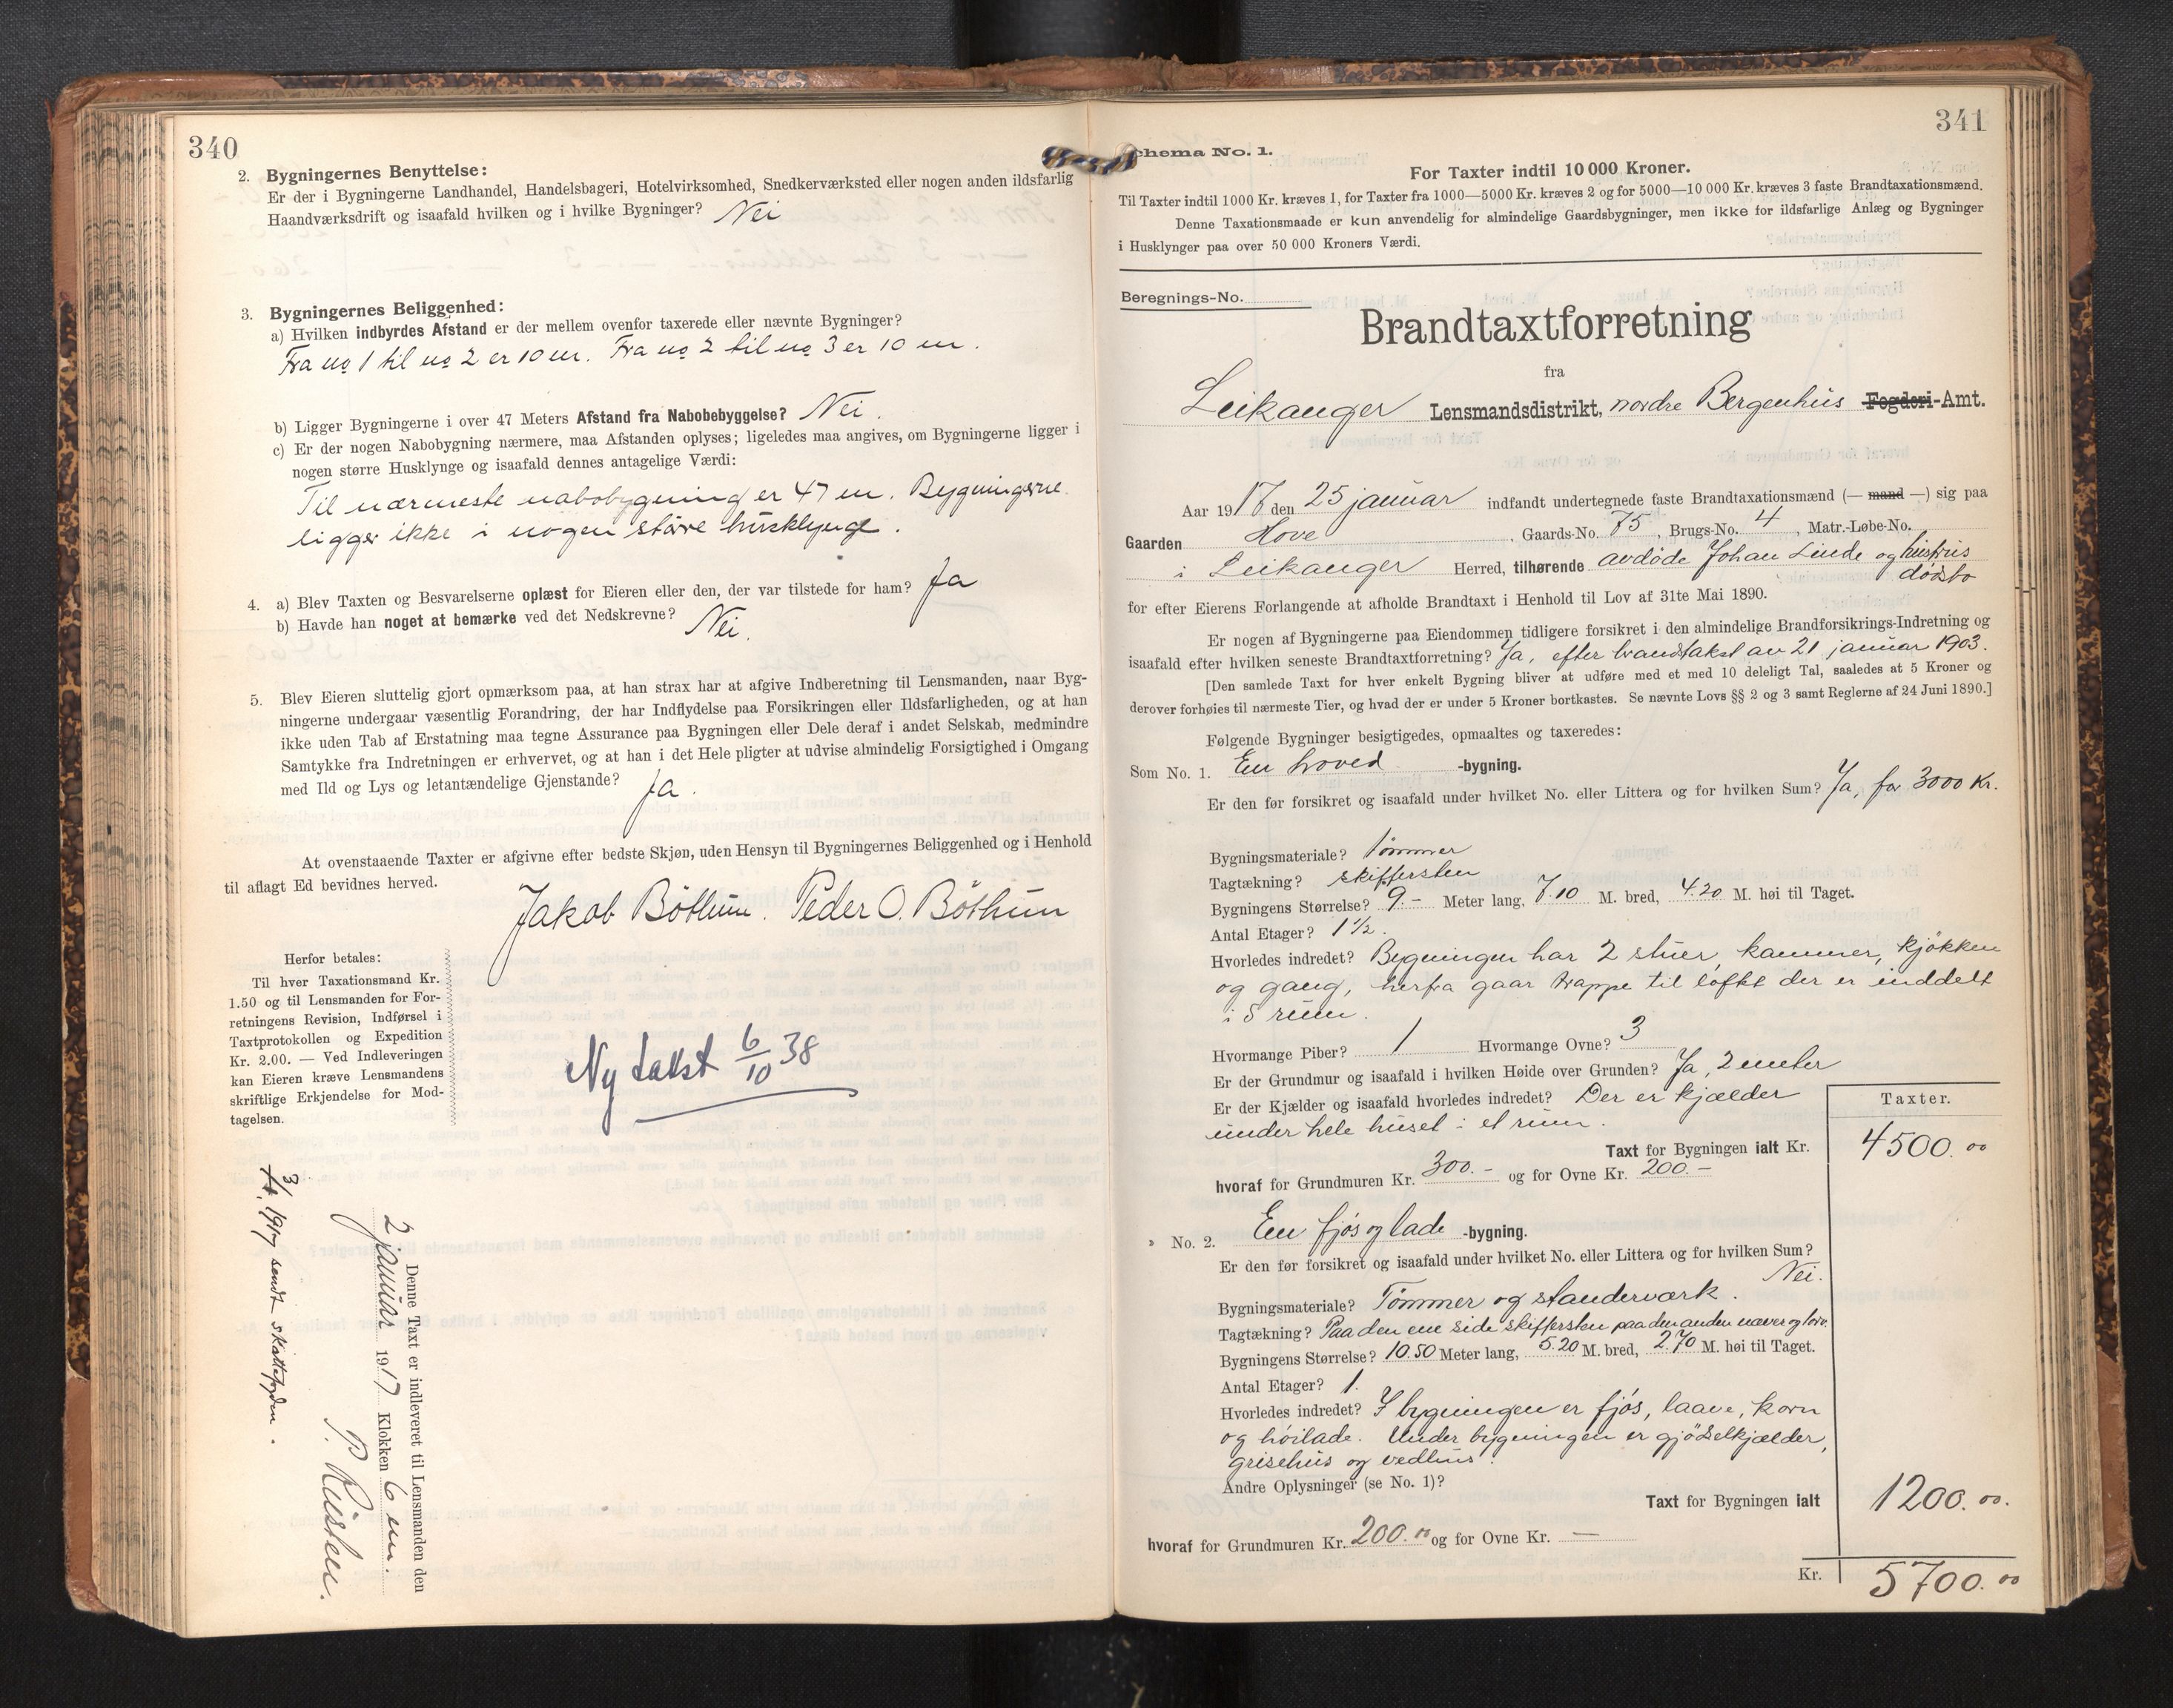 340
2. Bygningernes Benyttelse:
Er der i Bygningerne Landhandel, Handelsbageri, Hotelvirksomhed, Snedkerværksted eller nogen anden ildsfarlig
Haandværksdrift og isaafald hvilken og i hvilke Bygninger? Nei
3. Bygningernes Beliggenhed:
a) Hvilken indbyrdes Afstand er der mellem ovenfor taxerede eller nævnte Bygninger?
Fra no 1 til no 2 er 10 m. Fra no 2 til no 3 er 10 m.
b) Ligger Bygningerne i over 47 Meters Afstand fra Nabobebyggelse? Nei.
c) Er der nogen Nabobygning nærmere, maa Afstanden oplyses; ligeledes maa angives, om Bygningerne ligger i
nogen større Husklynge og isaafald dennes antagelige Værdi:
Til nærmeste nabobygning er 47 m. Bygningerne
ligger ikke i nogen större husklynge.
4. a) Blev Taxten og Besvarelserne oplæst for Eieren eller den, der var tilstede for ham? Ja
b) Havde han noget at bemærke ved det Nedskrevne? Nei.
5. Blev Eieren sluttelig gjort opmærksom paa, at han strax har at afgive Indberetning til Lensmanden, naar Byg-
ningerne undergaar væsentlig Forandring, der har Indflydelse paa Forsikringen eller Ildsfarligheden, og at han
ikke uden Tab af Erstatning maa tegne Assurance paa Bygningen eller Dele deraf i andet Selskab, medmindre
Samtykke fra Indretningen er erhvervet, og at han i det Hele pligter at udvise almindelig Forsigtighed i Omgang
med Ild og Lys og letantændelige Gjenstande? Ja.
At ovenstaaende Taxter er afgivne efter bedste Skjøn, uden Hensyn til Bygningernes Beliggenhed og i Henhold
til aflagt Ed bevidnes herved.
Jakob Böthun. Peder O. Böthun
Herfor betales:
Til hver Taxationsmand Kr.
1.50 og til Lensmanden for For-
retningens Revision, Indførsel i
Taxtprotokollen og Expedition
Kr. 2.00. — Ved Indleveringen
kan Eieren kræve Lensmandens
skriftlige Erkjendelse for Mod-
tagelsen.
Ny takst 6/10 38
Denne Taxt er indleveret til Lensmanden den
2 januar 1917 Klokken 6 em.
3/1. 1917 sendt skattefogden.
341
Schema No. 1.
For Taxter indtil 10 000 Kroner.
Til Taxter indtil 1000 Kr. kræves 1, for Taxter fra 1000—5000 Kr. kræves 2 og for 5000—10 000 Kr. kræves 3 faste Brandtaxationsmænd.
Denne Taxationsmaade er kun anvendelig for almindelige Gaardsbygninger, men ikke for ildsfarlige Anlæg og Bygninger
i Husklynger paa over 50 000 Kroners Værdi.
Beregnings-No.
Brandtaxtforretning
fra
Leikanger Lensmandsdistrikt, nordre Bergenhus Fogderi-Amt.
Aar 1917 den 25 januar indfandt undertegnede faste Brandtaxationsmænd (— mand —) sig paa
Gaarden Hove, Gaards-No. 75, Brugs-No. 4, Matr.-Løbe-No.
i Leikanger Herred, tilhørende avdøde Johan Linde og hustrus
dødsbo
for efter Eierens Forlangende at afholde Brandtaxt i Henhold til Lov af 31te Mai 1890.
Er nogen af Bygningerne paa Eiendommen tidligere forsikret i den almindelige Brandforsikrings-Indretning og
isaafald efter hvilken seneste Brandtaxtforretning? Ja, efter brandtakst av 21 januar 1903.
[Den samlede Taxt for hver enkelt Bygning bliver at udføre med et med 10 deleligt Tal, saaledes at 5 Kroner og
derover forhøies til nærmeste Tier, og hvad der er under 5 Kroner bortkastes. Se nævnte Lovs §§ 2 og 3 samt Reglerne af 24 Juni 1890.]
Følgende Bygninger besigtigedes, opmaaltes og taxeredes:
Som No. 1. En hoved -bygning.
Er den før forsikret og isaafald under hvilket No. eller Littera og for hvilken Sum? Ja, for 3000 Kr.
Bygningsmateriale? Tømmer
Tagtækning? skiffersten
Bygningens Størrelse? 9.- Meter lang, 7.10 M. bred, 4.20 M. høi til Taget.
Antal Etager? 1½.
Hvorledes indredet? Bygningen har 2 stuer kammer, kjökken
og gang, herfra gaar trappe til loftet der er inddelt
i 5 rum.
Hvormange Piber? 1 Hvormange Ovne? 3
Er der Grundmur og isaafald i hvilken Høide over Grunden? Ja, 2 meter
Er der Kjælder og isaafald hvorledes indredet? Der er kjælder
under hele huset i et rum.
Taxter.
Taxt for Bygningen ialt Kr. 4500.00
hvoraf for Grundmuren Kr. 300.- og for Ovne Kr. 200.-
» No. 2. En fjös og lade -bygning.
Er den før forsikret og isaafald under hvilket No. eller Littera og for hvilken Sum?
Nei.
Bygningsmateriale? Tömmer og standerværk.
Tagtækning? Paa den ene side skiffersten paa den anden næver og torv.
Bygningens Størrelse? 10.50 Meter lang, 5.20 M. bred, 2.70 M. høi til Taget.
Antal Etager? 1.
Hvorledes indredet? I bygningen er fjös, laave, korn
og höilade. Under bygningen er gjödselkjælder,
grisehus og vedhus.
Andre Oplysninger (se No. 1)?
Taxt for Bygningen ialt 1200.00.
hvoraf for Grundmuren Kr. 200.00 og for Ovne Kr. —
Kr. 5700.00